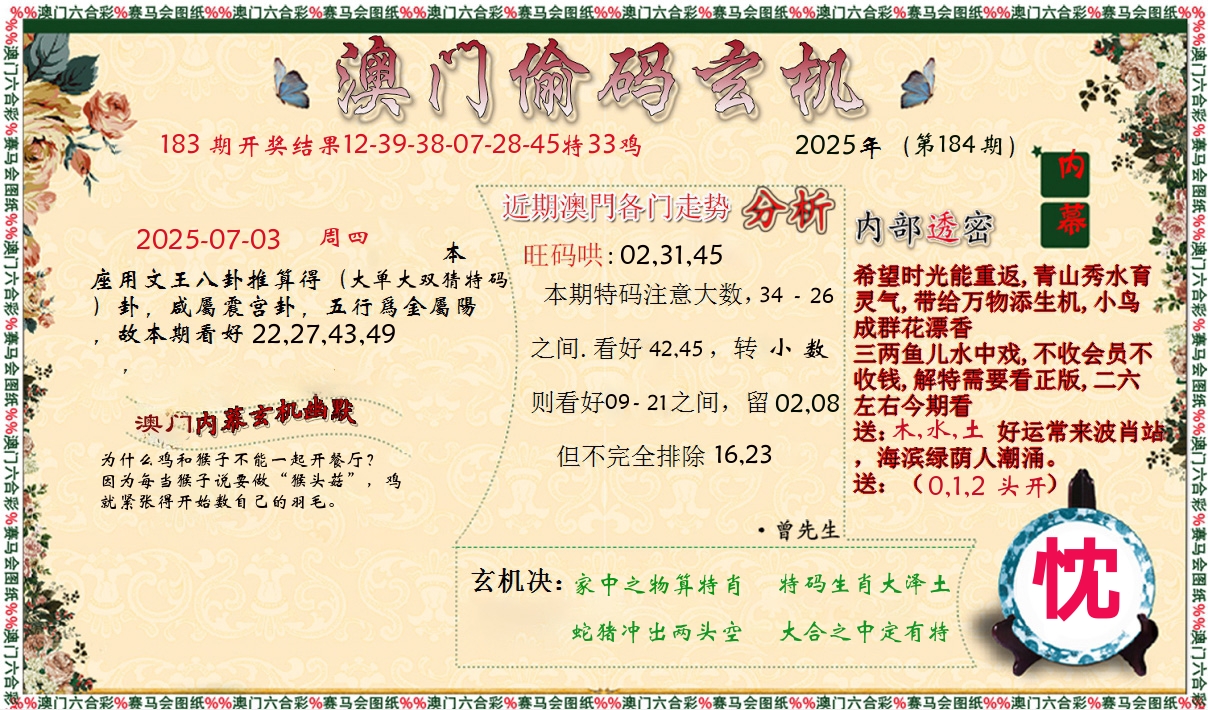 %%澳门六合彩%赛马会图纸%%澳门六合彩%赛马会图纸%%澳门六合彩%赛马会图纸%%澳门六合彩%赛马会图纸%%澳门六合彩%赛马会图纸%%澳门六合彩%赛马会图纸%%
澳门偷码玄机
183 期开奖结果12-39-38-07-28-45特33鸡
2025年（第184期）
内
幕
2025-07-03 周四
本
座用文王八卦推算得（大单大双猜特码
）卦，咸屬震宫卦，五行爲金屬陽
，故本期看好 22,27,43,49
，
澳门内幕玄机幽默
为什么鸡和猴子不能一起开餐厅？
因为每当猴子说要做“猴头菇”，鸡
就紧张得开始数自己的羽毛。
近期澳門各门走势 分析
旺码哄：02,31,45
本期特码注意大数，34 - 26
之间. 看好 42,45，转 小 数
则看好09-21之间，留 02,08
但不完全排除 16,23
·曾先生
内部透密
希望时光能重返, 青山秀水育
灵气, 带给万物添生机, 小鸟
成群花漂香
三两鱼儿水中戏, 不收会员不
收钱, 解特需要看正版, 二六
左右今期看
送：木,水,土 好运常来波肖站
，海滨绿荫人潮涌。
送：（0,1,2 头开）
玄机决：家中之物算特肖 特码生肖大泽土
蛇猪冲出两头空 大合之中定有特
忱
%%澳门六合彩%赛马会图纸%%澳门六合彩%赛马会图纸%%澳门六合彩%赛马会图纸%%澳门六合彩%赛马会图纸%%澳门六合彩%赛马会图纸%%澳门六合彩%赛马会图纸%%